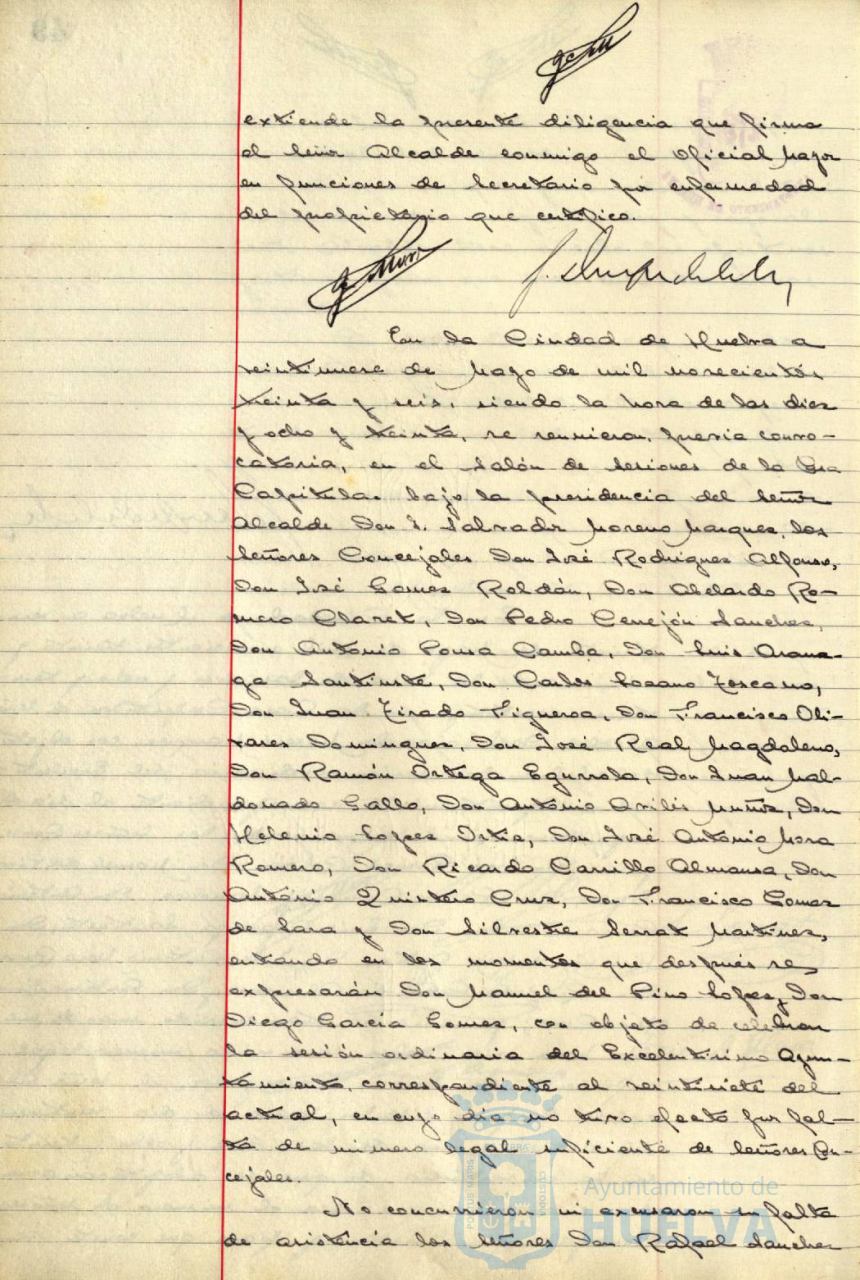 extiende la presente diligencia que firma
el Señor Alcalde conmigo el Oficial Mayor
en funciones de Secretario por enfermedad
del propietario que certifico.
En la Ciudad de Huelva a
veintinueve de Mayo de mil novecientos
treinta y seis, siendo la hora de las diez
y ocho y treinta, se reunieron, previa convo-
catoria, en el Salón de Sesiones de la Casa
Capitular bajo la presidencia del Señor
Alcalde Don S. Salvador Moreno Marquez, los
Señores Concejales Don José Rodriguez Alfonso,
Don José Gomez Roldán, Don Abelardo Ro-
mero Claret, Don Pedro Cerrejón Sanchez,
Don Antonio Pousa Camba, Don Luis Arana-
ga Don Carlos Lozano Toscano,
Don Juan Tirado Figueroa, Don Francisco Oli-
vares Dominguez, Don José Real Magdaleno,
Don Ramón Ortega Egurrola, Don Juan Mal-
donado Gallo, Don Antonio Avilés Muñoz, Don
Helenio Lopez Ortiz, Don José Antonio Mora
Romero, Don Ricardo Carrillo Almansa, Don
António Quintero Cruz, Don Francisco Gomez
de Lara y Don Silvestre Serrat Martinez,
entrando en los momentos que después se
expresarán Don Manuel del Pino Lopez y Don
Diego García Gomez, con objeto de celebrar
la sesión ordinaria del Excelentísimo Ayun-
tamiento, correspondiente al veintisiete del
actual, en cuyo día no tuvo efecto por fal-
ta de número legal suficiente de Señores Con-
cejales.
No concurrieron ni excusaron su falta
de asistencia los Señores Don Rafael Sanchez
Ayuntamiento de
HUELVA
PORTUS MARIS
ET TERRAE CUSTODIA